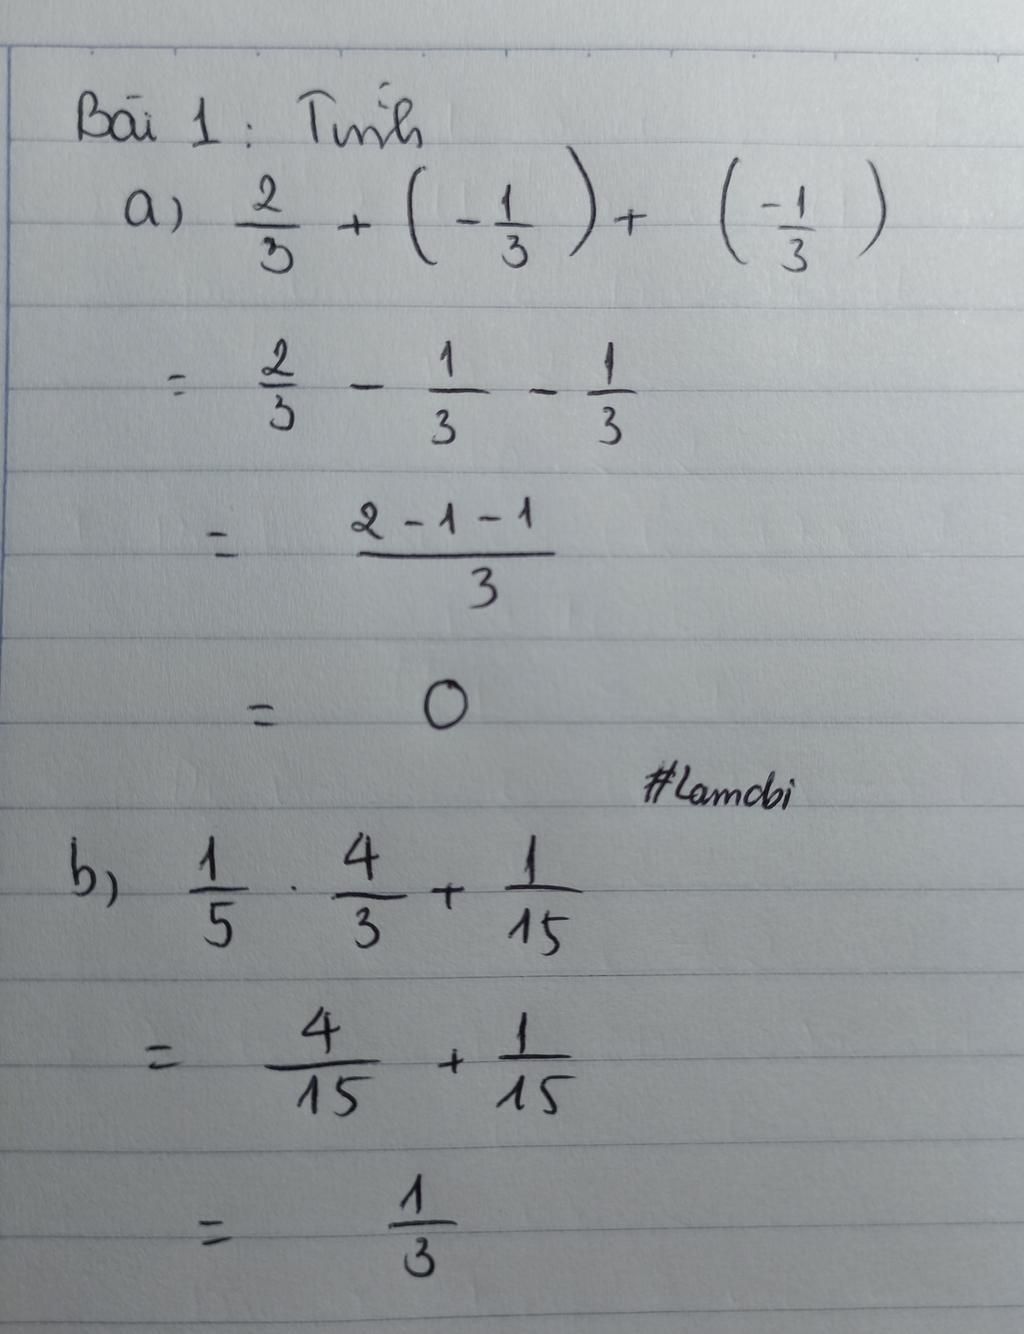 Bài 1: Tính
a) 2/3 + (-1/3) + (-1/3)
= 2/3 - 1/3 - 1/3
= (2 - 1 - 1)/3
= 0
#Lamdbi
b) 1/5 . 4/3 + 1/15
= 4/15 + 1/15
= 1/3